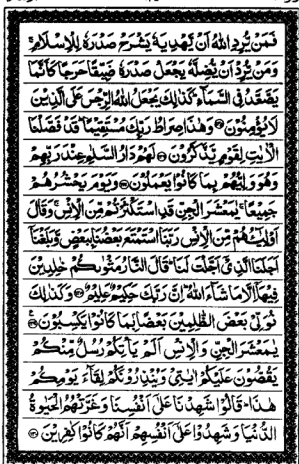 فَمَنْ يُّرِدِ اللّٰهُ اَنْ يَّهْدِيَهٗ يَشْرَحْ صَدْرَهٗ لِلْاِسْلَامِ ۚ
وَمَنْ يُّرِدْ اَنْ يُّضِلَّهٗ يَجْعَلْ صَدْرَهٗ ضَيِّقًا حَرَجًا كَاَنَّمَا
يَصَّعَّدُ فِى السَّمَآءِ ؕ كَذٰلِكَ يَجْعَلُ اللّٰهُ الرِّجْسَ عَلَى الَّذِيْنَ
لَا يُؤْمِنُوْنَ ۝ وَهٰذَا صِرَاطُ رَبِّكَ مُسْتَقِيْمًا ؕ قَدْ فَصَّلْنَا
الْاٰيٰتِ لِقَوْمٍ يَّذَّكَّرُوْنَ ۝ لَهُمْ دَارُ السَّلٰمِ عِنْدَ رَبِّهِمْ
وَهُوَ وَلِيُّهُمْ بِمَا كَانُوْا يَعْمَلُوْنَ ۝ وَيَوْمَ يَحْشُرُهُمْ
جَمِيْعًا ۚ يٰمَعْشَرَ الْجِنِّ قَدِ اسْتَكْثَرْتُمْ مِّنَ الْاِنْسِ ۚ وَقَالَ
اَوْلِيٰٓؤُهُمْ مِّنَ الْاِنْسِ رَبَّنَا اسْتَمْتَعَ بَعْضُنَا بِبَعْضٍ وَّبَلَغْنَآ
اَجَلَنَا الَّذِىْٓ اَجَّلْتَ لَنَا ؕ قَالَ النَّارُ مَثْوٰىكُمْ خٰلِدِيْنَ
فِيْهَآ اِلَّا مَا شَآءَ اللّٰهُ ؕ اِنَّ رَبَّكَ حَكِيْمٌ عَلِيْمٌ ۝ وَكَذٰلِكَ
نُوَلِّىْ بَعْضَ الظّٰلِمِيْنَ بَعْضًا بِمَا كَانُوْا يَكْسِبُوْنَ ۝
يٰمَعْشَرَ الْجِنِّ وَالْاِنْسِ اَلَمْ يَاْتِكُمْ رُسُلٌ مِّنْكُمْ
يَقُصُّوْنَ عَلَيْكُمْ اٰيٰتِىْ وَيُنْذِرُوْنَكُمْ لِقَآءَ يَوْمِكُمْ
هٰذَا ؕ قَالُوْا شَهِدْنَا عَلٰٓى اَنْفُسِنَا وَغَرَّتْهُمُ الْحَيٰوةُ
الدُّنْيَا وَشَهِدُوْا عَلٰٓى اَنْفُسِهِمْ اَنَّهُمْ كَانُوْا كٰفِرِيْنَ ۝